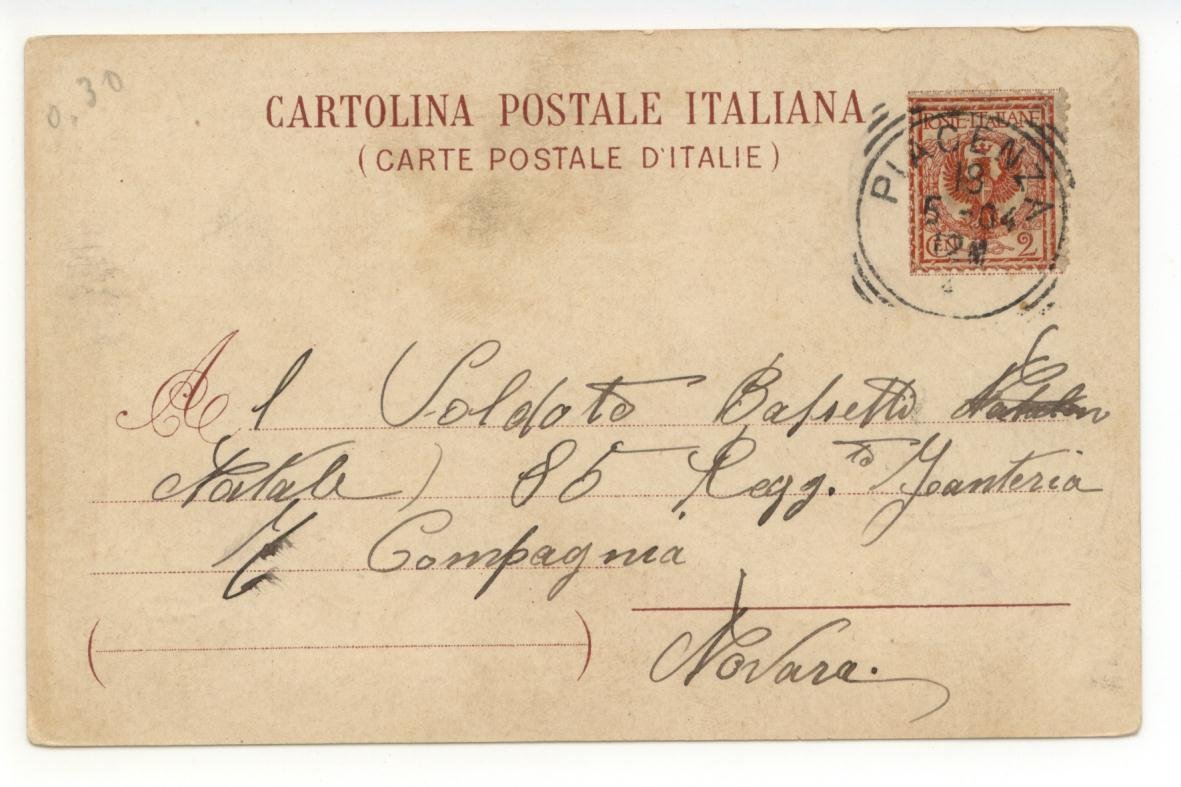 0.30
CARTOLINA POSTALE ITALIANA
(CARTE POSTALE D'ITALIE)
PIACENZA
18
5 - 04
12M
POSTE ITALIANE
CEN 2
Al Soldato Bassetti
Natale) 85 Regg.to Fanteria
Compagnia
Novara.